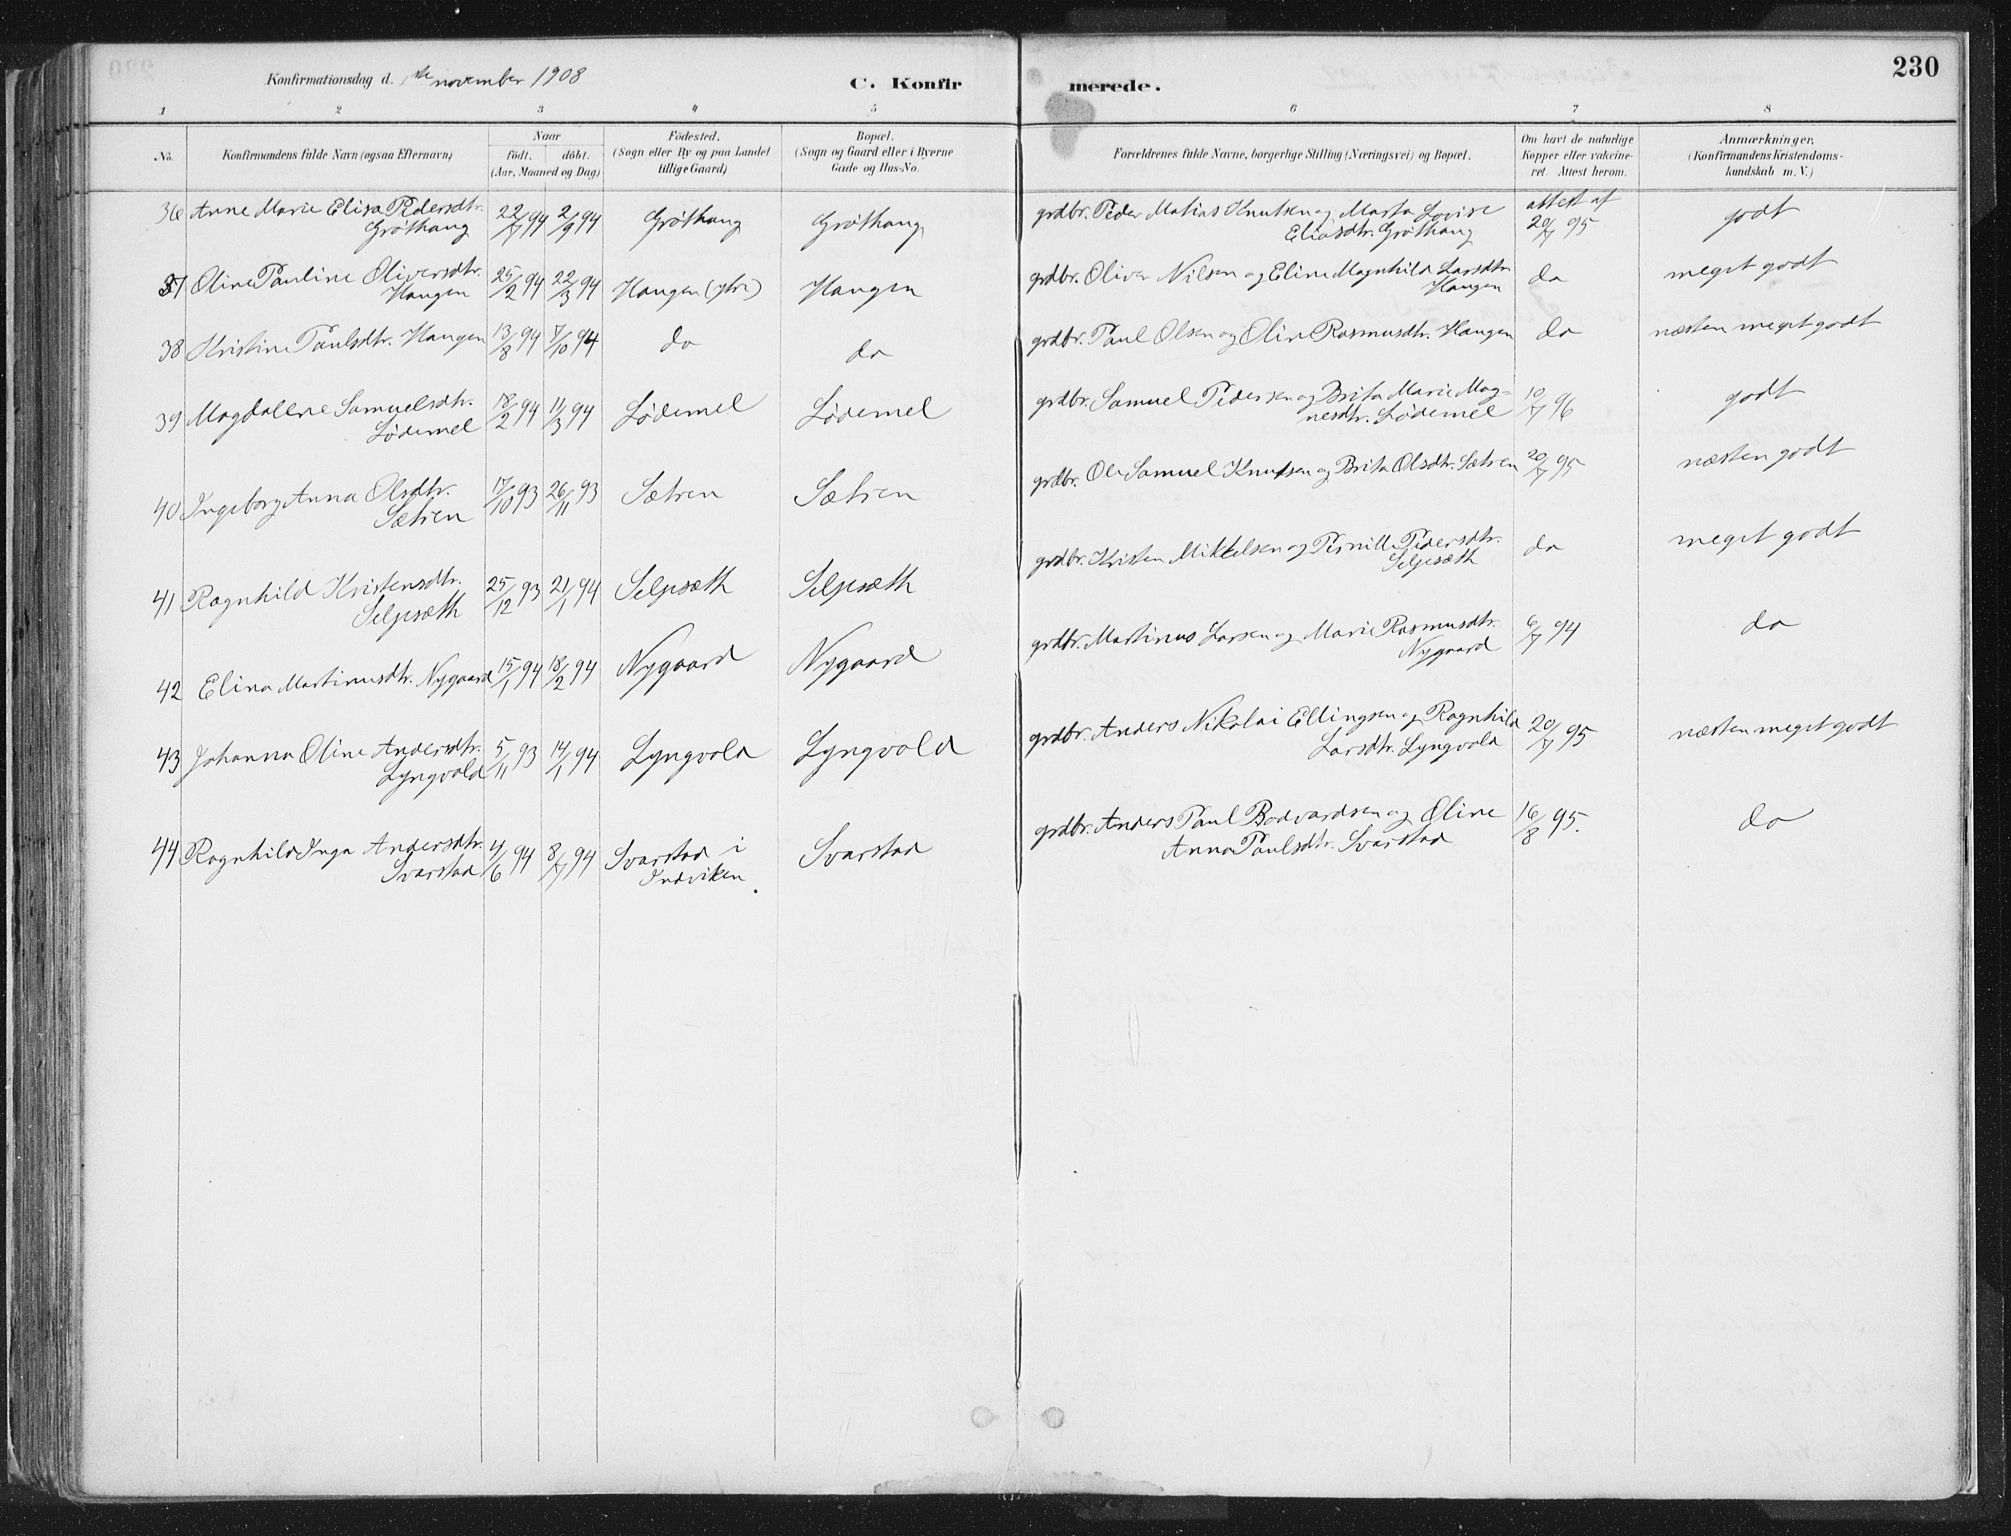 230
Konfirmationsdag d. 1ste november 1908
C. Konfir
merede.
1 2 3 4 5 6 7 8
No. Konfirmandens fulde Navn (ogsaa Efternavn) Naar født. døbt. (Aar, Maaned og Dag) Födested. (Sogn eller By og paa Landet tillige Gaard) Bopæl. (Sogn og Gaard eller i Byerne Gade og Hus-No. Forældrenes fulde Navne, borgerlige Stilling (Næringsvei) og Bopæl. Om havt de naturlige Kopper eller vakcineret. Attest herom. Anmærkninger. (Konfirmandens Kristendomskundskab m. V.)
36 Anne Marie Elisa Pedersdtr. 22/7 94 2/9 94 Grøthaug Grøthaug grdbr. Peder Matias Knutsen og Marta Lovise attest af godt
Grøthaug Eliasdtr. Grøthaug 20/7 95
37 Oline Pauline Oliversdtr. 25/2 94 22/3 94 Haugen (ytre) Haugen grdbr. Oliver Nilsen og Eline Magnhild Larsdtr. do meget godt
Haugen Haugen
38 Kristine Paulsdtr. Haugen 13/8 94 7/10 94 do do grdbr. Paul Olsen og Oline Rasmusdtr. Haugen do næsten meget godt
39 Magdalene Samuelsdtr. 18/2 94 11/3 94 Lødemel Lødemel grdbr. Samuel Pedersen og Brita Marie Mag- 10/7 96 godt
Lødemel nesdtr. Lødemel
40 Ingeborg Anna Olsdtr. 17/10 93 26/11 93 Sætren Sætren grdbr. Ole Samuel Knutsen og Brita Olsdtr. Sætren 20/7 95 næsten godt
Sætren
41 Ragnhild Kristensdtr. 25/12 93 21/1 94 Seljesæth Seljesæth grdbr. Kristen Mikkelsen og Pernille Pedersdtr. do meget godt
Seljesæth Seljesæth
42 Elina Martinusdtr. Nygaard 15/1 94 18/2 94 Nygaard Nygaard grdbr. Martinus Larsen og Marie Rasmusdtr. 6/7 94 do
Nygaard
43 Johanna Oline Andersdtr. 5/11 93 14/1 94 Lyngvold Lyngvold grdbr. Anders Nikolai Ellingsen og Ragnhild 20/7 95 næsten meget godt
Lyngvold Larsdtr. Lyngvold
44 Ragnhild Inga Andersdtr. 4/6 94 8/7 94 Svarstad i Svarstad grdbr. Anders Paul Bodvardsen og Oline 16/8 95. do
Svarstad Indviken. Anna Paulsdtr. Svarstad